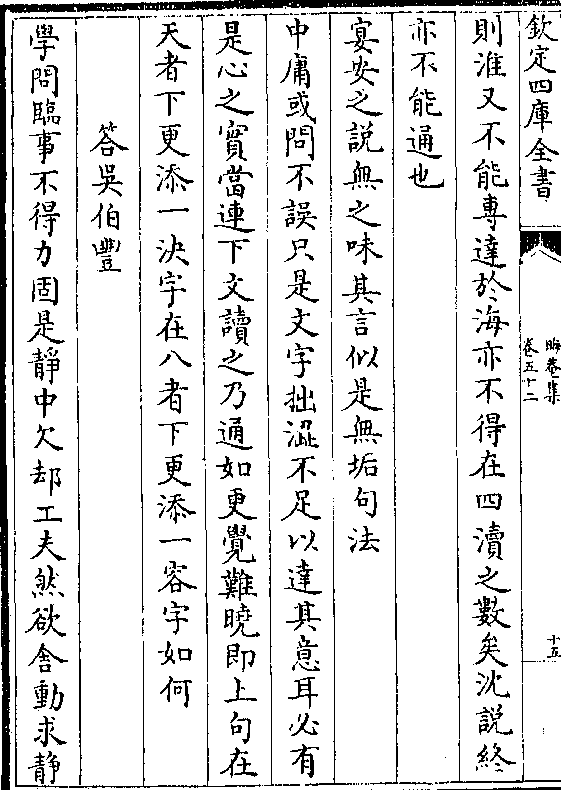 欽定四庫全書
晦菴集
卷五十二
十五
則淮又不能專達於海亦不得在四瀆之數矣沈說終
亦不能通也
宴安之說無之味其言似是無垢句法
中庸或問不誤只是文字拙澀不足以達其意耳必有
是心之實當連下文讀之乃通如更覺難曉即上句在
天者下更添一決字在八者下更添一容字如何
答吳伯豐
學問臨事不得力固是靜中欠却工夫然欲舍動求靜